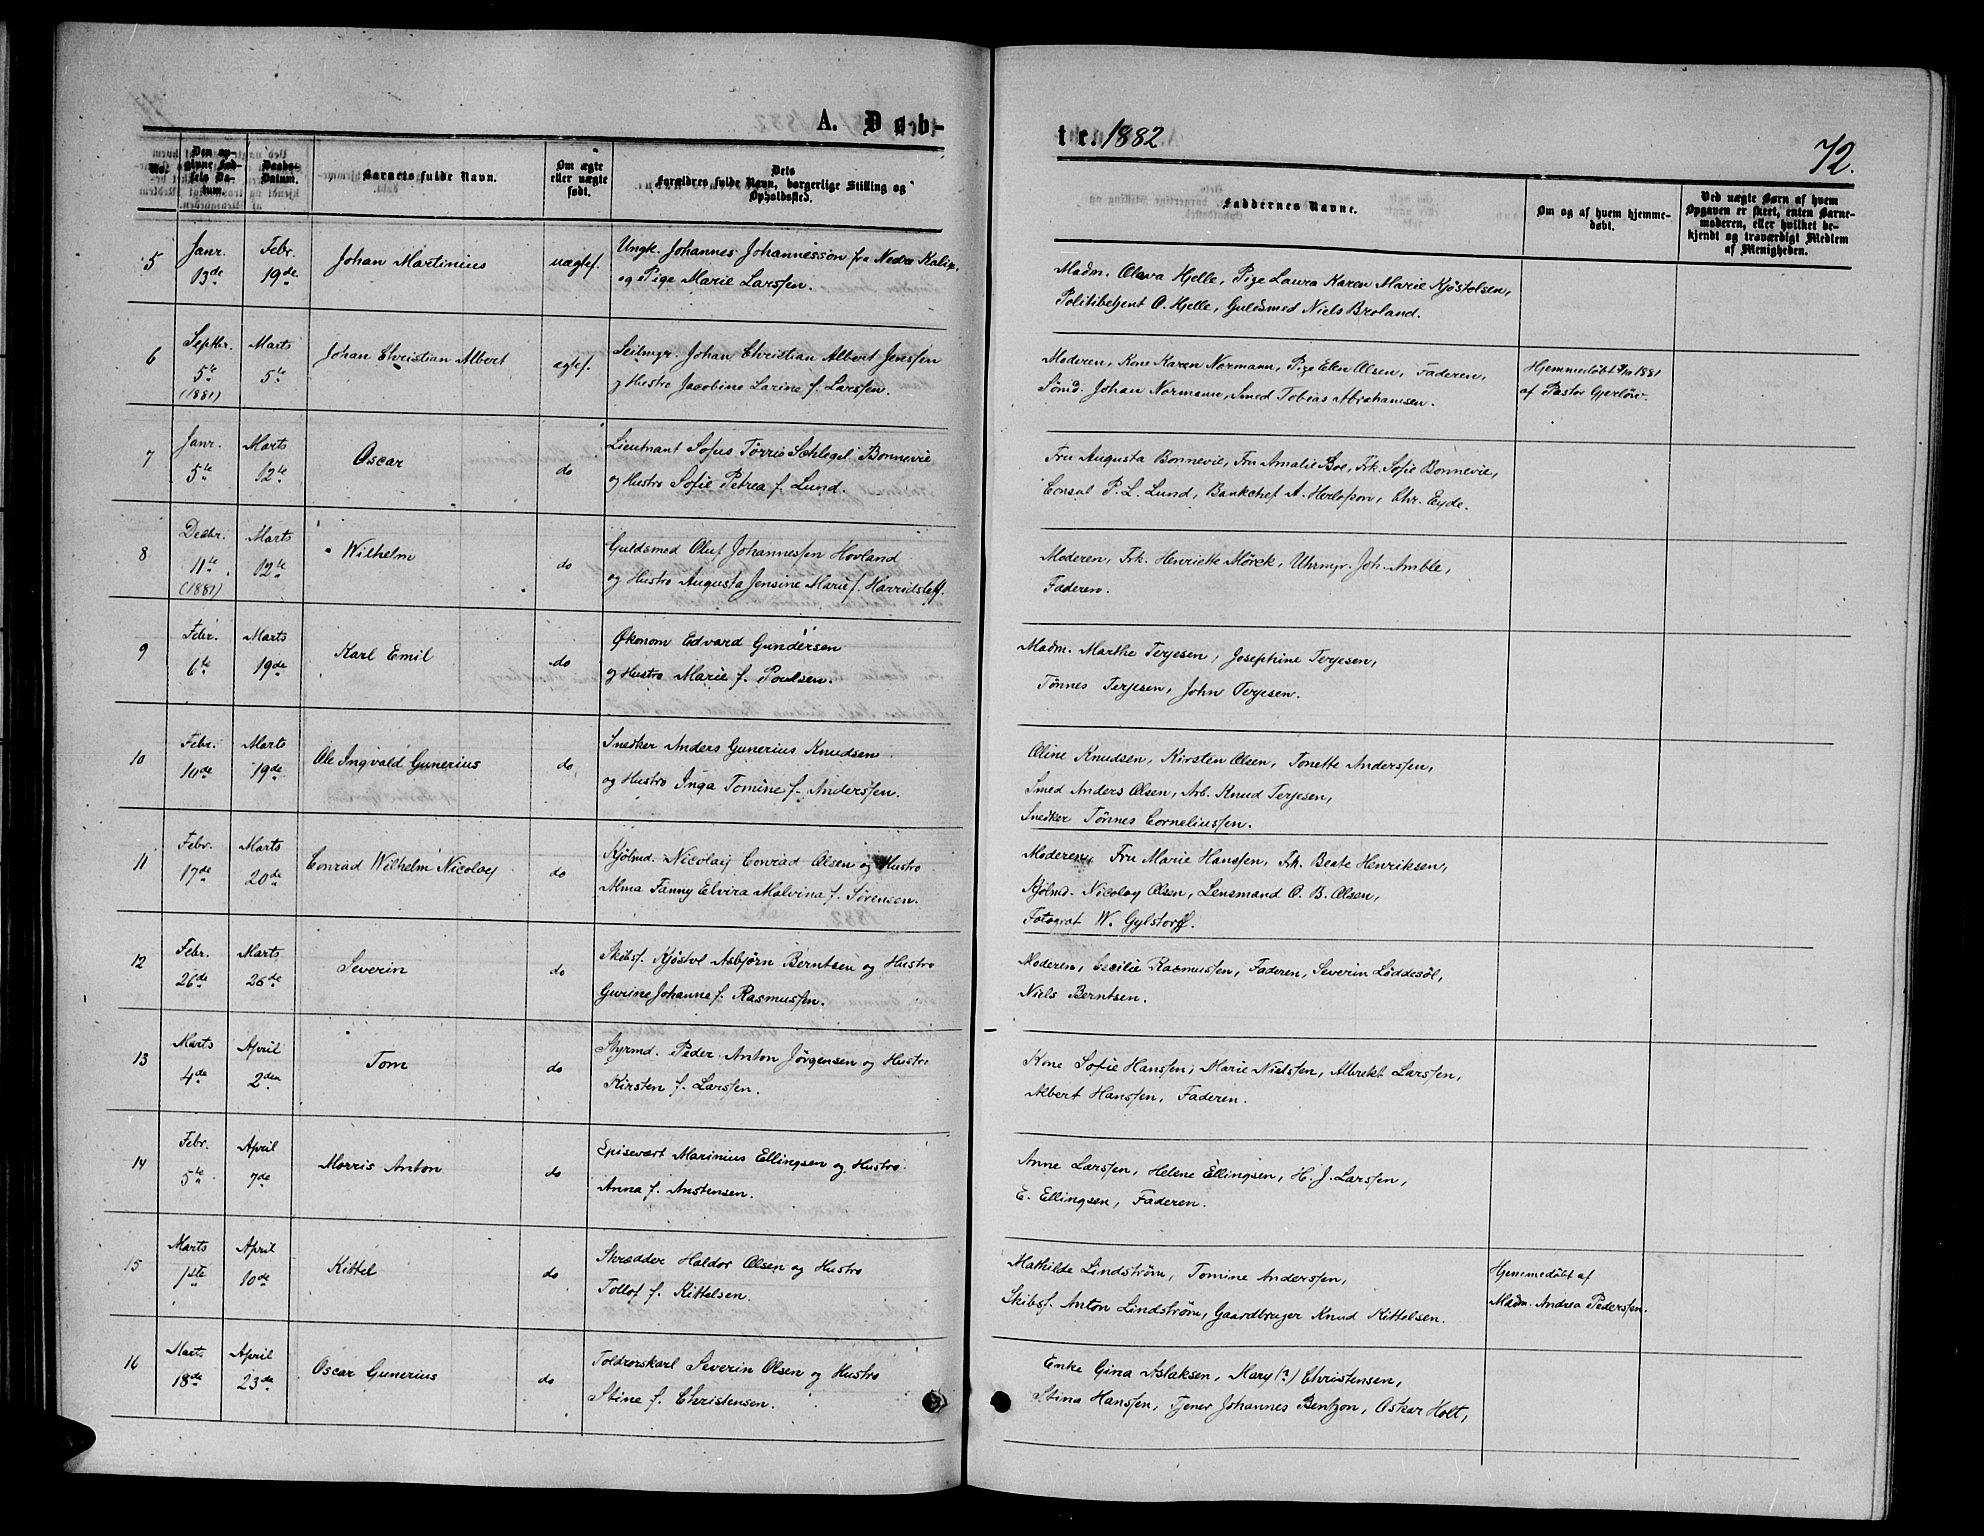 A. Døb-
te. 1882
72.
No.
Den opgivne Fødsels Datum.
Daabs-Datum.
Barnets fulde Navn.
Om ægte eller uægte født.
Dets Forældres fulde Navn, borgerlige Stilling og Opholdssted.
Faddernes Navne.
Om og af hvem hjemmedøbt.
Ved uægte Børn af hvem Opgaven er skeet, enten Barnemoderen, eller hvilket bekjendt og troværdigt Medlem af Menigheden.
5 Janr. 13de Febr. 19de Johan Martinius uægtef. Ungk. Johannes Johannesson fra Nedre Kalix.
og Pige Marie Larssen.
Madm. Olava Hjelle, Pige Laura Karen Marie Kjöstolsen,
Politibetjent O. Hjelle, Guldsmed Niels Broland.
6 Septbr. 5te (1881) Marts 5te Johan Christian Albert ægtef. Seilmgr. Johan Christian Albert Jenssen
og Hustro Jacobine Larine f. Larssen.
Moderen, Kone Karen Normann, Pige Elen Olsen, Faderen,
Sömd. Johan Normann, Smed Tobias Abrahamsen.
Hjemmedöbt 1881
af Pastor Gjerlöw.
7 Janr. 5te Marts 12te Oscar do Lieutnant Sofus Törris Schlegel Bonnevie
og Hustro Sofie Petrea f. Lund.
Fru Augusta Bonnevie, Fru Amalie Boe, Frk. Sofie Bonnevie,
Consul P. L. Lund, Bankchef A. Herlofson, Chr. Eyde.
8 Decbr. 11te (1881) Marts 12te Wilhelm do Guldsmed Oluf Johannessen Hovland
og Hustro Augusta Jensine Marie f. Harridsleff.
Moderen, Frk. Henriette Mörck, Uhrmgr. Joh. Amble,
Faderen.
9 Febr. 6te Marts 19de Karl Emil do Økonom Edvard Gundersen
og Hustro Marie f. Poulsen.
Madm. Marthe Terjesen, Josephine Terjesen,
Tönnes Terjesen, John Terjesen.
10 Febr. 10de Marts 19de Ole Ingvald Gunerius do Snedker Anders Gunerius Knudsen
og Hustro Inga Tomine f. Anderssen.
Oline Knudsen, Kirsten Olsen, Tonette Anderssen,
Smed Anders Olsen, Arb. Knud Terjesen,
Snedker Tönnes Corneliussen.
11 Febr. 17de Marts 20de Conrad Wilhelm Nicolay do Kjölmd. Nicolay Conrad Olsen og Hustro
Alma Fanny Elvira Malvina f. Sörensen.
Moderen, Fru Marie Hanssen, Frk. Beate Henriksen,
Kjölmd. Nicolay Olsen, Lensmand O. B. Olsen,
Fotograf W. Gylstorff.
12 Febr. 26de Marts 26de Severin do Skibsf. Kjöstvl Asbjörn Berntsen og Hustro
Gurine Johanne f. Rasmussen.
Moderen, Cecilie Rasmussen, Faderen, Severin Löddesöl,
Niels Berntsen.
13 Marts 4de April 2den Tom do Styrmd. Peder Anton Jörgensen og Hustro
Kirsten f. Larssen.
Kone Sofie Hanssen, Marie Nielssen, Albrekt Larssen,
Albert Hanssen, Faderen.
14 Febr. 5te April 7de Morris Anton do Spisevært Marinius Ellingsen og Hustro
Anna f. Anstensen.
Anne Larssen, Helene Ellingsen, H. J. Larssen,
E. Ellingsen, Faderen.
15 Marts 1ste April 10de Kittel do Skrædder Haldor Olsen og Hustro
Tollof f. Kittelsen.
Mathilde Lindström, Tomine Anderssen,
Skibsf. Anton Lindström, Gaardbruger Knud Kittelsen.
Hjemmedöbt af
Madm. Andrea Pederssen.
16 Marts 18de April 23de Oscar Gunerius do Toldrorskarl Severin Olsen og Hustro
Stine f. Christensen.
Enke Gina Aslaksen, Mary (?) Christensen,
Stina Hanssen, Tjener Johannes Bentzon, Oskar Holt,